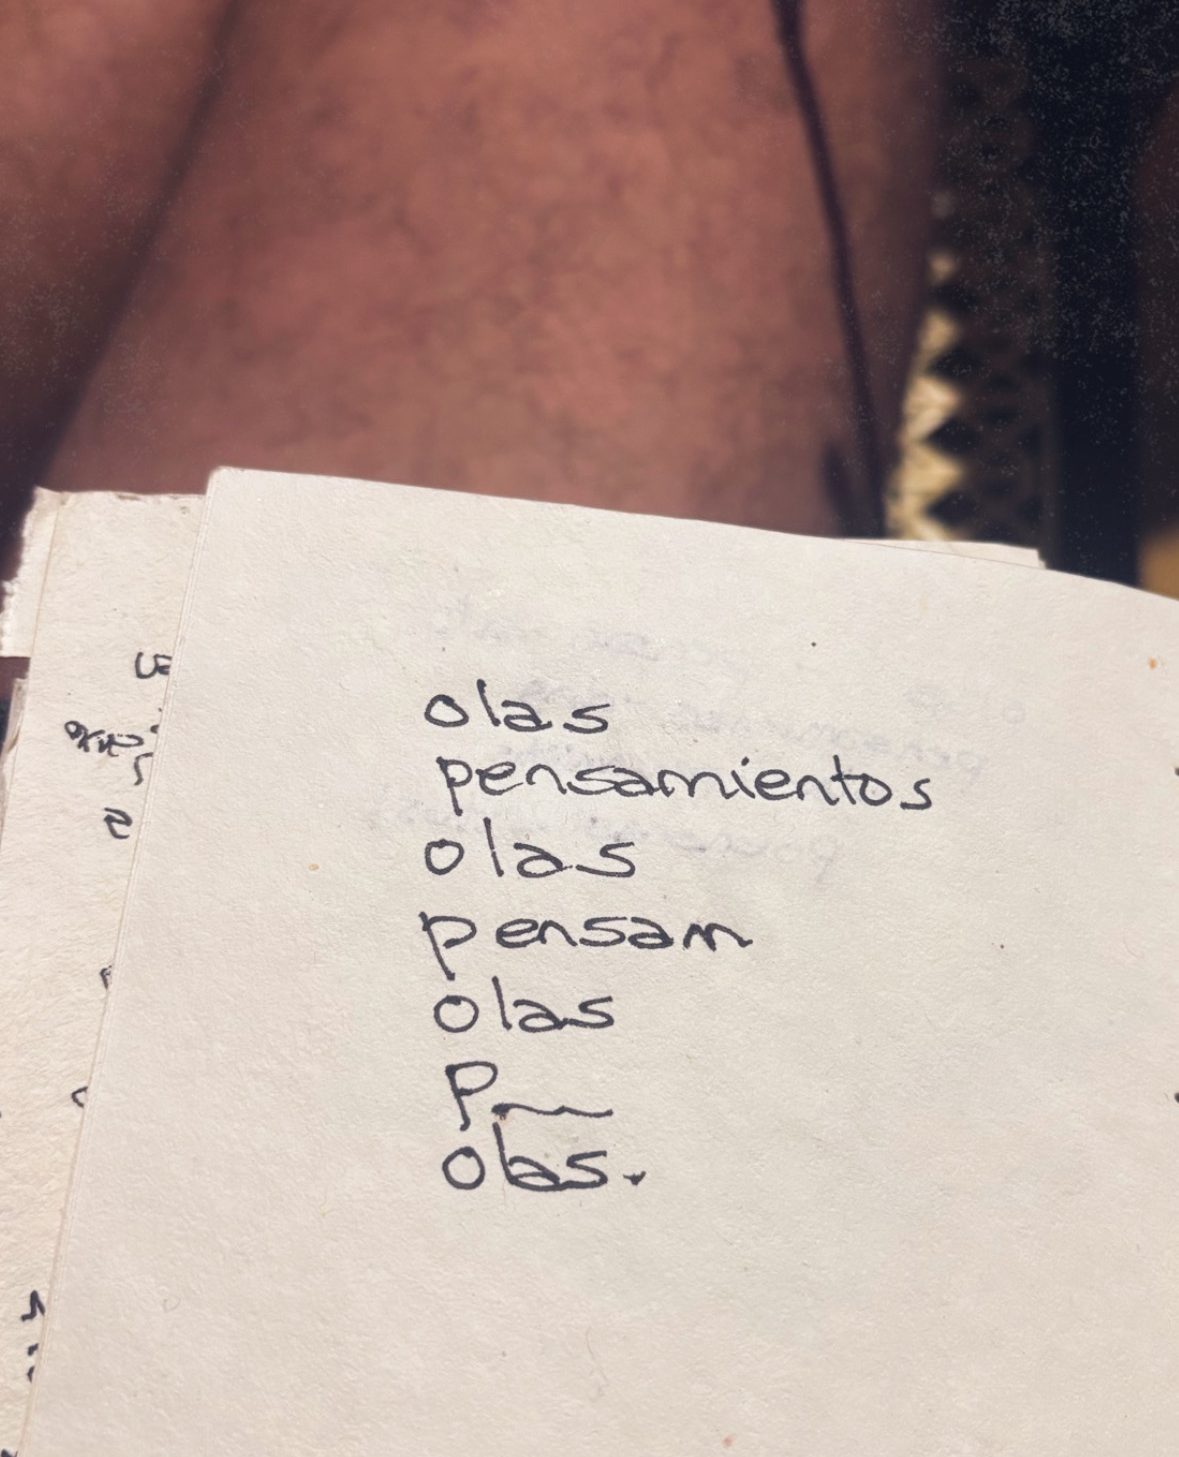 olas
pensamientos
olas
pensam
olas
p__
olas.